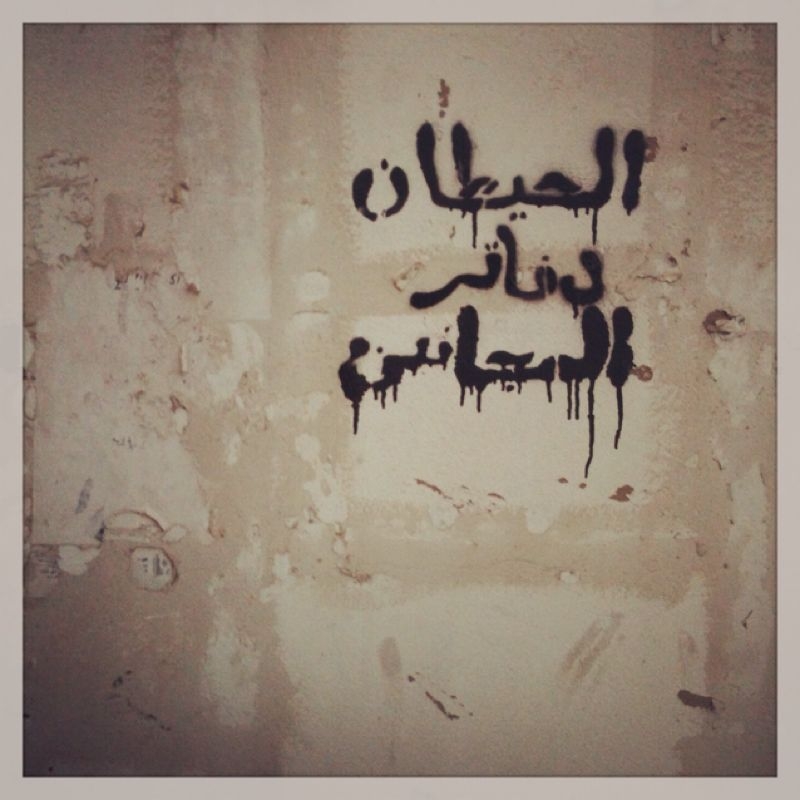 الحيطان
دفاتر
المجانين